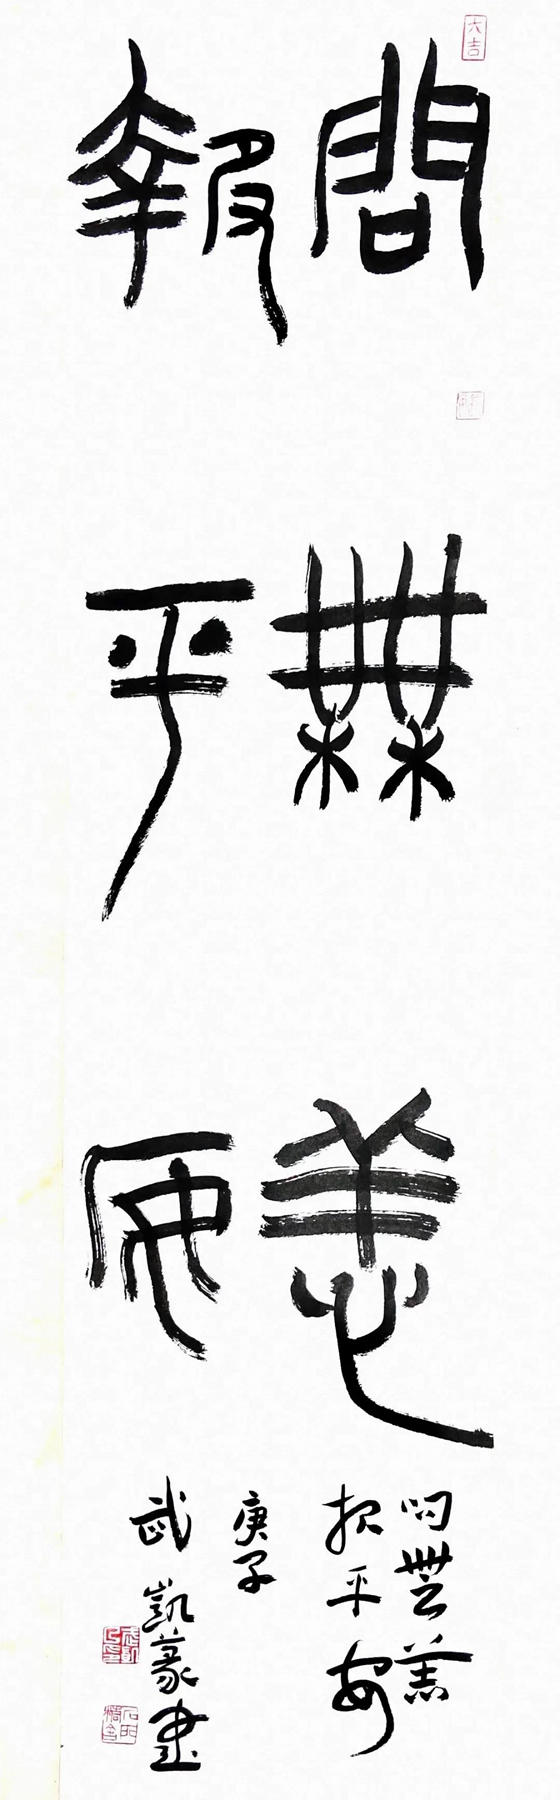 問無恙
報平安
問無恙
报平安
庚子
武凱篆書
大吉